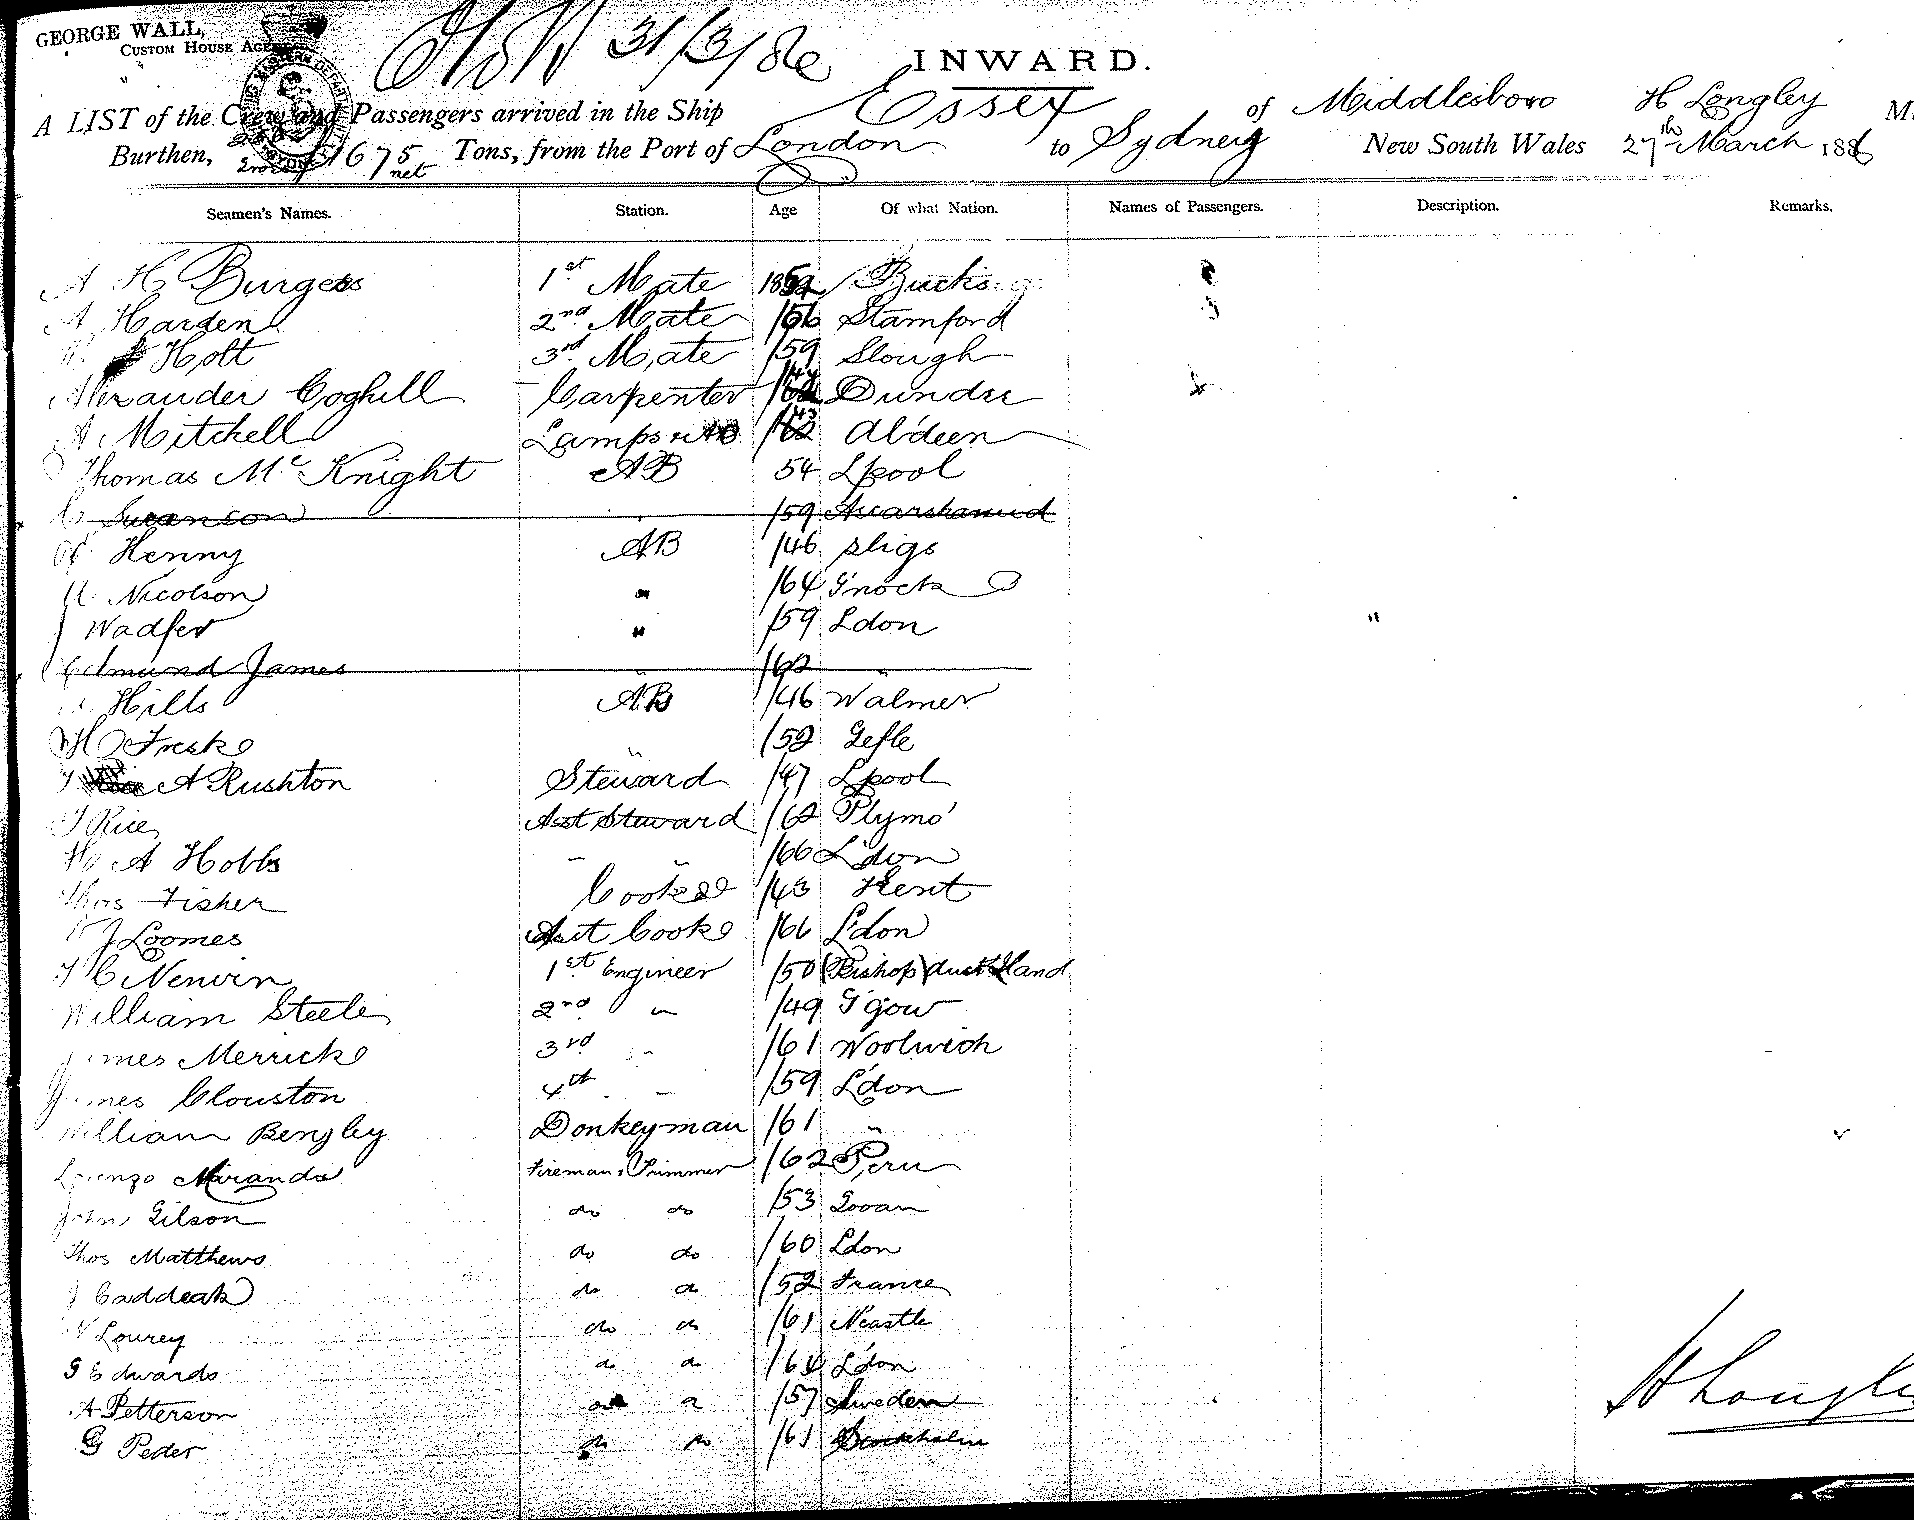 GEORGE WALL,
CUSTOM HOUSE AGENT
31/3/86
INWARD.
A LIST of the Crew and Passengers arrived in the Ship Essex of Middlesboro H Longley
Burthen, 1675 net Tons, from the Port of London to Sydney New South Wales 27th March 1886
Seamen's Names. Station. Age Of what Nation. Names of Passengers. Description. Remarks.
A H Burgess 1st Mate Bucks
A Harden 2nd Mate /56 Stamford
Holt 3rd Mate /59 Slough
Alexander Coghill Carpenter /44 Dundee
A Mitchell Lamps /43 Ab'deen
Thomas McKnight AB 54 Lpool
C Swanson /59
Henny AB /46 Sligo
Nicolson " /64 G'nock
J Wadfer " /59 Ldon
Edmund James " /62 "
Hills AB /46 Walmer
H Freske " /52 Gefle
A Rushton Steward /47 Lpool
J Rice Asst Steward /62 Plymo'
H A Hobbs " " /66 L'don
Thos Fisher Cook /43 Kent
J Loomes Asst Cook /66 L'don
1st Engineer /50 Bishop Auckland
William Steele 2nd " /49 G'gow
James Merrick 3rd " /61 Woolwich
James Clouston 4th " /59 L'don
William Bengley Donkeyman /61 "
Lorenzo Miranda Fireman & Trimmer /62 Peru
John Gilson do do /53 Govan
Thos Matthews do do /60 Ldon
J Caddeak do do /52 France
Lourey do do /61 N'castle
G Edwards do do /64 L'don
A Petterson do do /57 Sweden
G Peder do do /61 Stockholm
H Longley